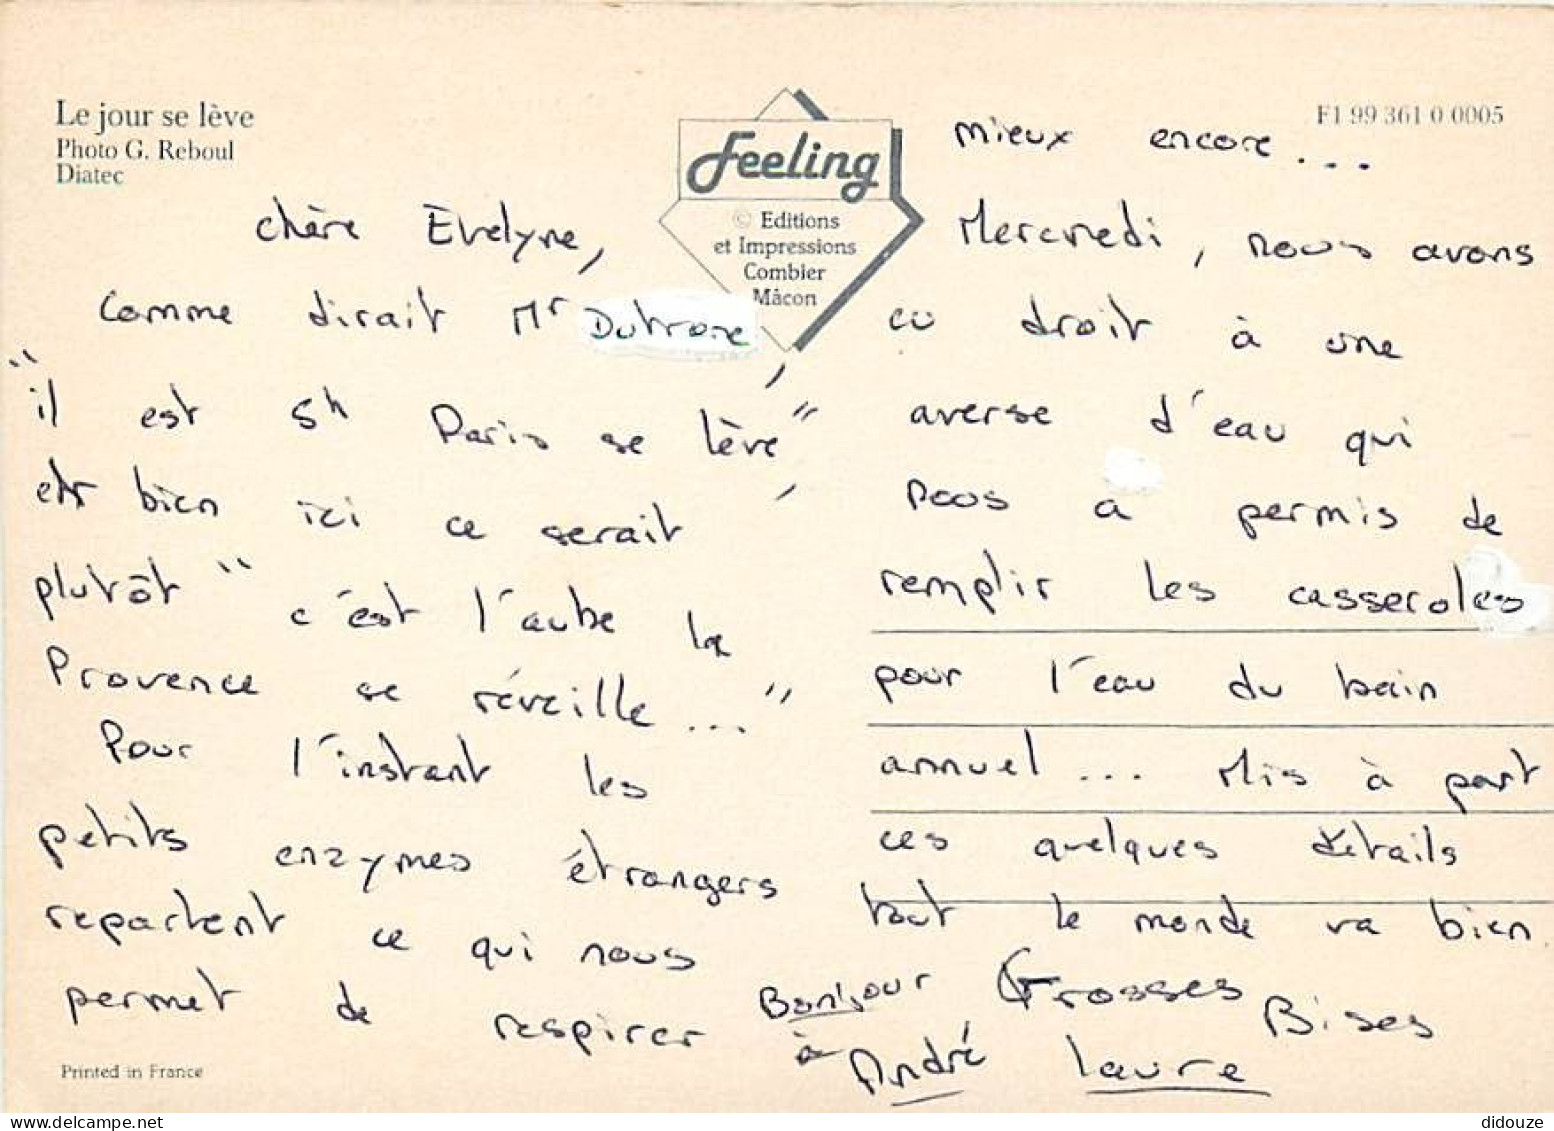 Le jour se lève
Photo G. Reboul
Diatec
Feeling
© Editions
et Impressions
Combier
Mâcon
F1 99 361 0 0005
chère Evelyne,
Comme dirait Mr Dutronc,
"il est 5h Paris se lève"
eh bien ici ce serait
plutôt "c'est l'aube la
Provence se réveille..."
Pour l'instant les
petits enzymes étrangers
repartent ce qui nous
permet de respirer
mieux encore...
Mercredi, nous avons
eu droit à une
averse d'eau qui
nous a permis de
remplir les casseroles
pour l'eau du bain
annuel... Mis à part
ces quelques détails
tout le monde va bien.
Grosses Bises
Laure
Bonjour
à André
Printed in France
didouze